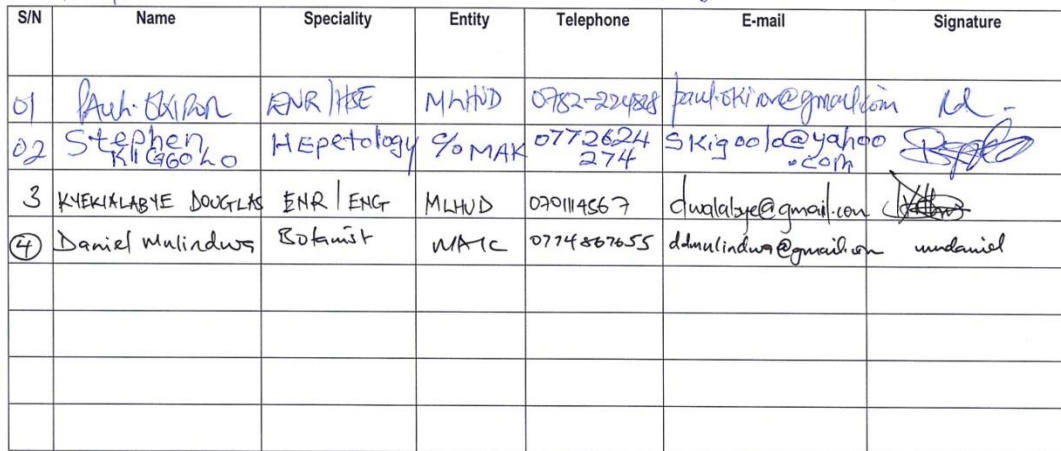 S/N Name Speciality Entity Telephone E-mail Signature
01 Paul Okiror ENR/HSE MLHUD paul.okiror@gmail.com
02 Stephen KIGGOLO HEpetology C/o MAK 0772624274 skigoolo@yahoo.com
3 KYEKIALABYE DOUGLAS ENR/ENG MLHUD 0701114567 dwalabye@gmail.com
4 Daniel Mulindwa Botanist MAK 0774867655 ddmulindwa@gmail.com mndaniel